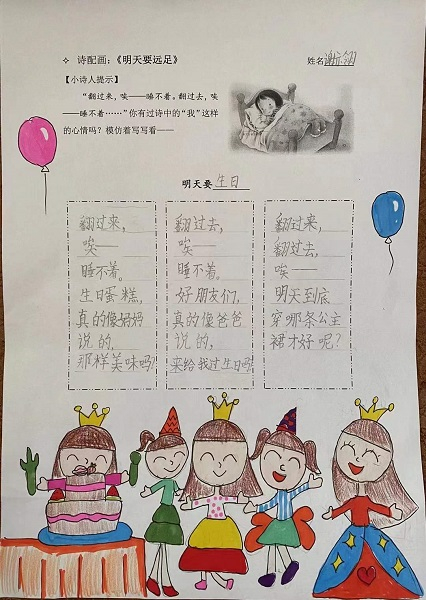 ✧ 诗配画：《明天要远足》
姓名
【小诗人提示】
“翻过来，唉——睡不着。翻过去，唉
——睡不着……”你有过诗中的“我”这样
的心情吗？模仿着写写看——
明天要生日
翻过来，
唉——
睡不着。
生日蛋糕，
真的像妈妈
说的，
那样美味吗？
翻过去，
唉——
睡不着。
好朋友们，
真的像爸爸
说的，
来给我过生日吗？
翻过来，
翻过去，
唉——
明天到底
穿哪条公主
裙才好呢？